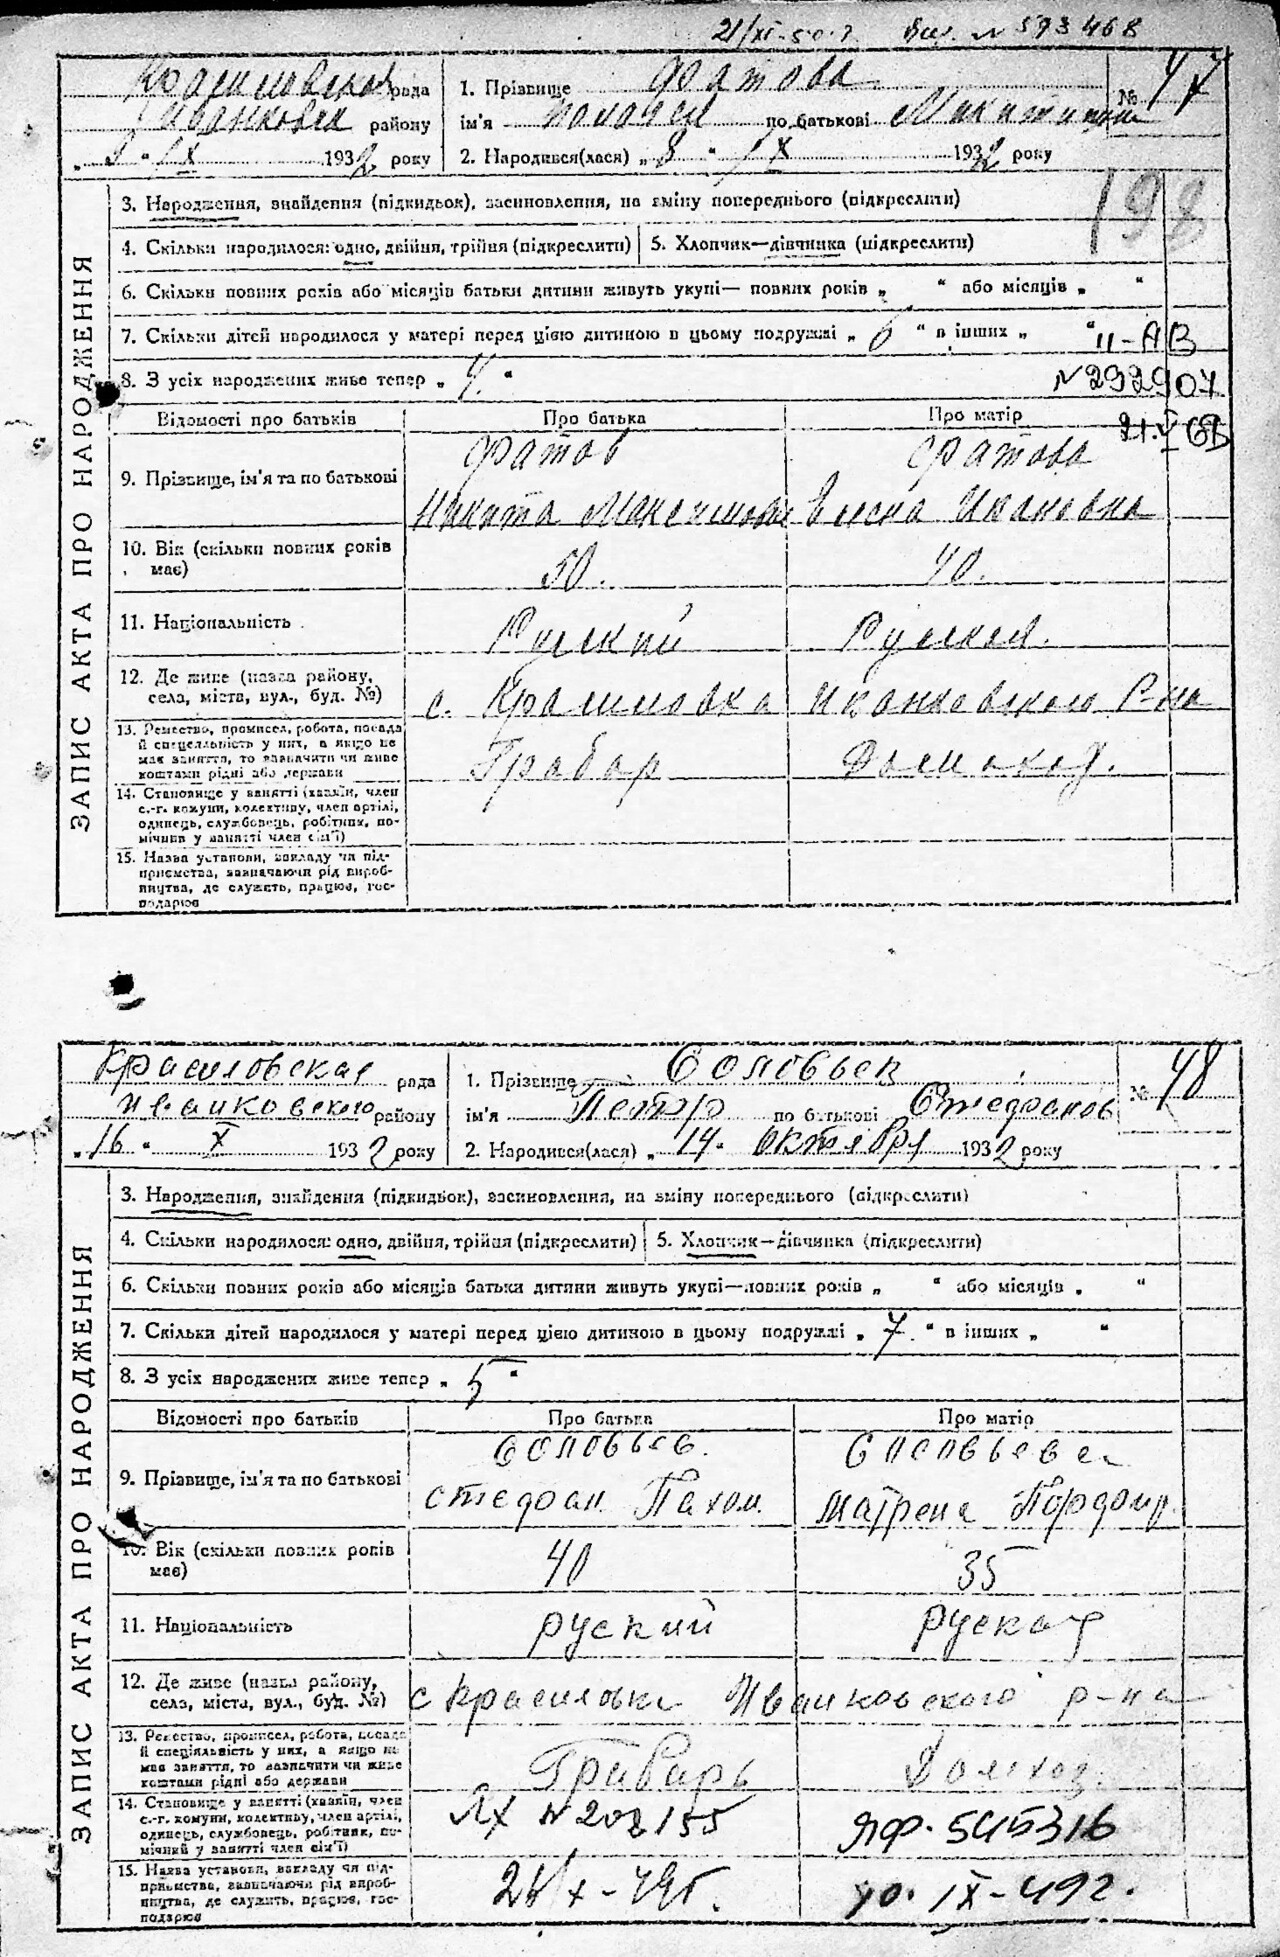 21/XI-50 г. Выд. N 593468
Красиловская рада
Иванковск району
„ 8 “ IX 1932 року
1. Прізвище Фатова
ім'я по батькові
2. Народився(лася) „ 8 “ IX 1932 року
№ 47
198
ЗАПИС АКТА ПРО НАРОДЖЕННЯ
3. Народження, знайдення (підкидьок), засиновлення, на зміну попереднього (підкреслити)
4. Скільки народилося: одно, двійня, трійня (підкреслити)
5. Хлопчик—дівчинка (підкреслити)
6. Скільки повних років або місяців батьки дитини живуть укупі— повних років „ “ або місяців „ “
7. Скільки дітей народилося у матері перед цією дитиною в цьому подружжі „ 6 “ в інших „ “
II-АВ
8. З усіх народжених живе тепер „ 4. “
N 292907
Відомості про батьків
Про батька
Про матір
21.V 6
9. Прізвище, ім'я та по батькові
Фатов
Никита Максимов
Фатова
Елена Ивановна
10. Вік (скільки повних років має)
50.
40.
11. Національність
Руский
Руская.
12. Де живе (назва району,
села, міста, вул., буд. №)
с. Красиловка Иванковского Р-на
13. Ремество, промисел, робота, посада
й спеціяльність у них, а якщо не
має заняття, то зазначити чи живе
коштами рідні або держави
Грабар
Домоход.
14. Становище у занятті (хазяїн, член
с.-г. комуни, колективу, член артілі,
одинець, службовець, робітник, по-
мічник у занятті член сім'ї)
15. Назва установи, закладу чи під-
приємства, зазначаючи рід вироб-
ництва, де служить, працює, гос-
подарює
Красиловская рада
Иванковского району
„ 16 “ X 1932 року
1. Прізвище Соловьев
ім'я Петр по батькові Стефанов
2. Народився(лася) „ 14. Октября 1932 року
№ 48
ЗАПИС АКТА ПРО НАРОДЖЕННЯ
3. Народження, знайдення (підкидьок), засиновлення, на зміну попереднього (підкреслити)
4. Скільки народилося: одно, двійня, трійня (підкреслити)
5. Хлопчик—дівчинка (підкреслити)
6. Скільки повних років або місяців батьки дитини живуть укупі—повних років „ “ або місяців „ “
7. Скільки дітей народилося у матері перед цією дитиною в цьому подружжі „ 7. “ в інших „ “
8. З усіх народжених живе тепер „ 5 “
Відомості про батьків
Про батька
Про матір
9. Прізвище, ім'я та по батькові
Соловьев.
Стефан Пахом.
Соловьева
Матрена
10. Вік (скільки повних років має)
40
35
11. Національність
руский
руская
12. Де живе (назва району,
села, міста, вул., буд. №)
с Красиловка Иванковского р-на
13. Ремество, промисел, робота, посада
й спеціяльність у них, а якщо не
має заняття, то зазначити чи живе
коштами рідні або держави
Грабарь
Домоход.
14. Становище у занятті (хазяїн, член
с.-г. комуни, колективу, член артілі,
одинець, службовець, робітник, по-
мічний у занятті член сім'ї)
ЯФ. 545316
15. Назва установи, закладу чи під-
приємства, зазначаючи рід вироб-
ництва, де служить, працює, гос-
подарює
IX-49г.